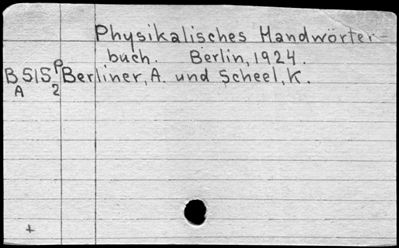 Physikalisches Handwörter-
buch. Berlin, 1924.
B515 P Berliner, A. und Scheel, K.
A 2
+